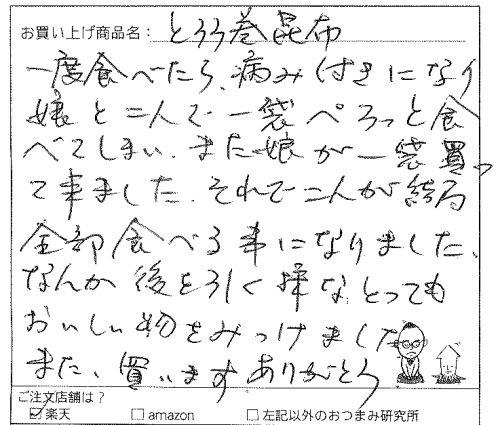 お買い上げ商品名： とろろ巻昆布
一度食べたら、病みつきになり
娘と二人で一袋ペろっと食
べてしまい、また娘が一袋買っ
て来ました、それで二人が結局
全部食べる事になりました、
なんか後を引く様なとっても
おいしい物をみつけました
また、買いますありがとう
ご注文店舗は？
☑楽天 □amazon □左記以外のおつまみ研究所